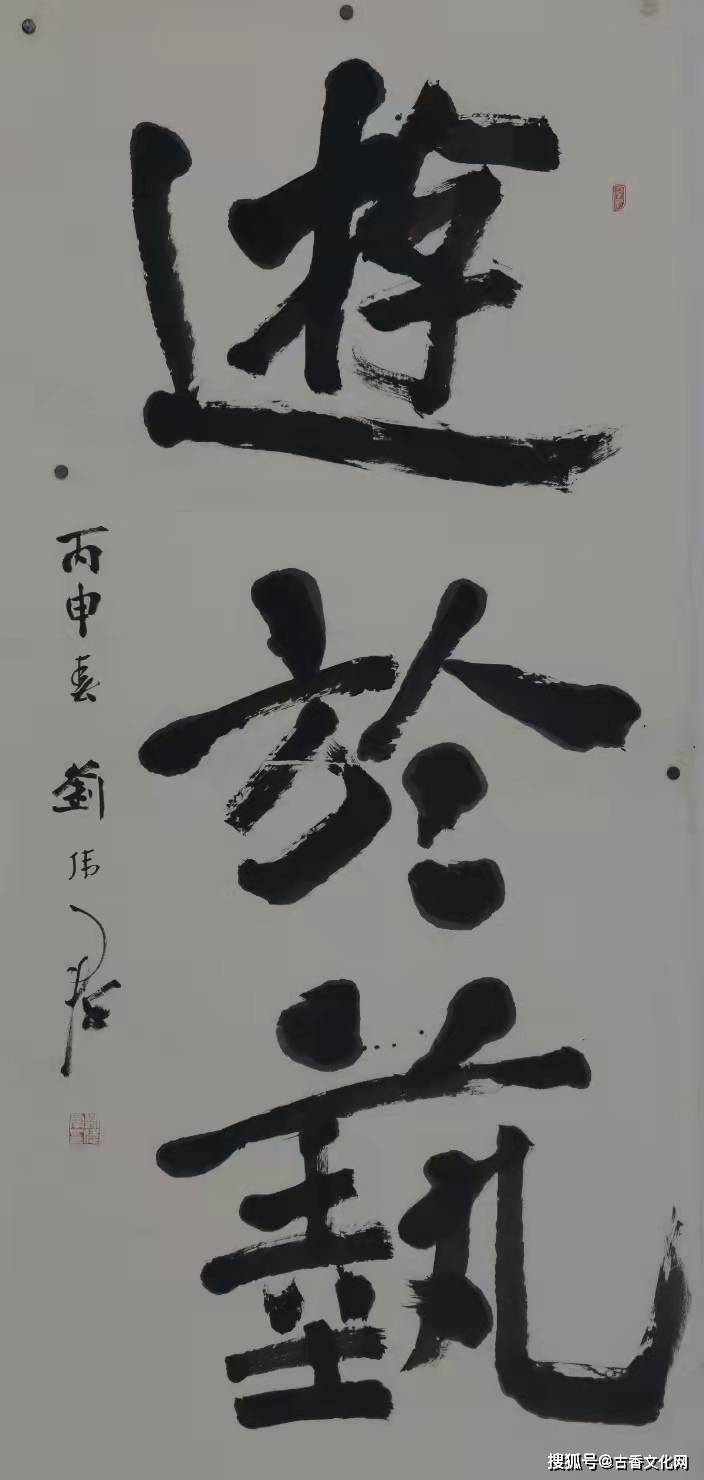 遊於蓺
丙申春 劉伟
搜狐号@古香文化网